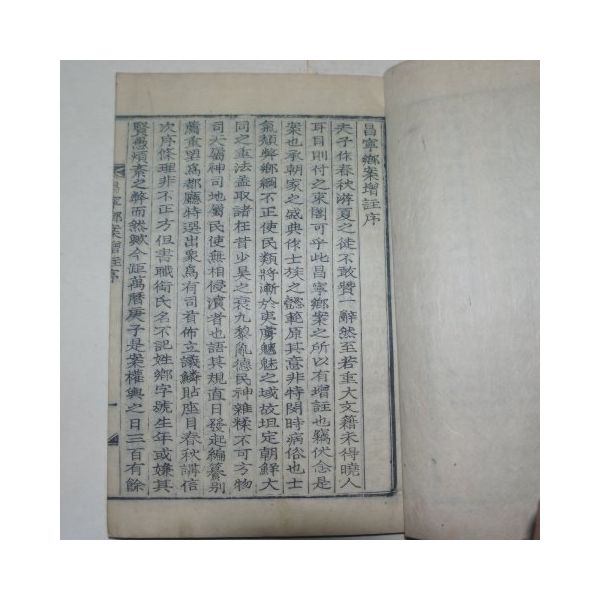 昌寧鄕案增註序
夫子作春秋游夏之徒不敢贊一辭然至若重大文籍未得曉人
耳目則付之束閣可乎此昌寧鄕案之所以有增註也竊伏念是
案也承朝家之盛典作士族之懿範原其意非特関時病俗也士
氣頹弊鄕綱不正使民類將漸於夷虜魑魅之域故坦定朝鮮大
同之重法盖取諸枉昔少昊之衰九黎亂德民神雜糅不可方物
司天屬神司地屬民使無相侵瀆者也語其規直日發起編纂別
薦重望爲都廳特選出衆爲有司首佈立議鱗貼座目春秋講信
次序條理非不正方但書職銜氏名不記姓鄕字號生年或嫌其
賢愚煩紊之弊而然歟今距萬曆庚子是案權輿之日三百有餘
昌寧鄕案增註序
一